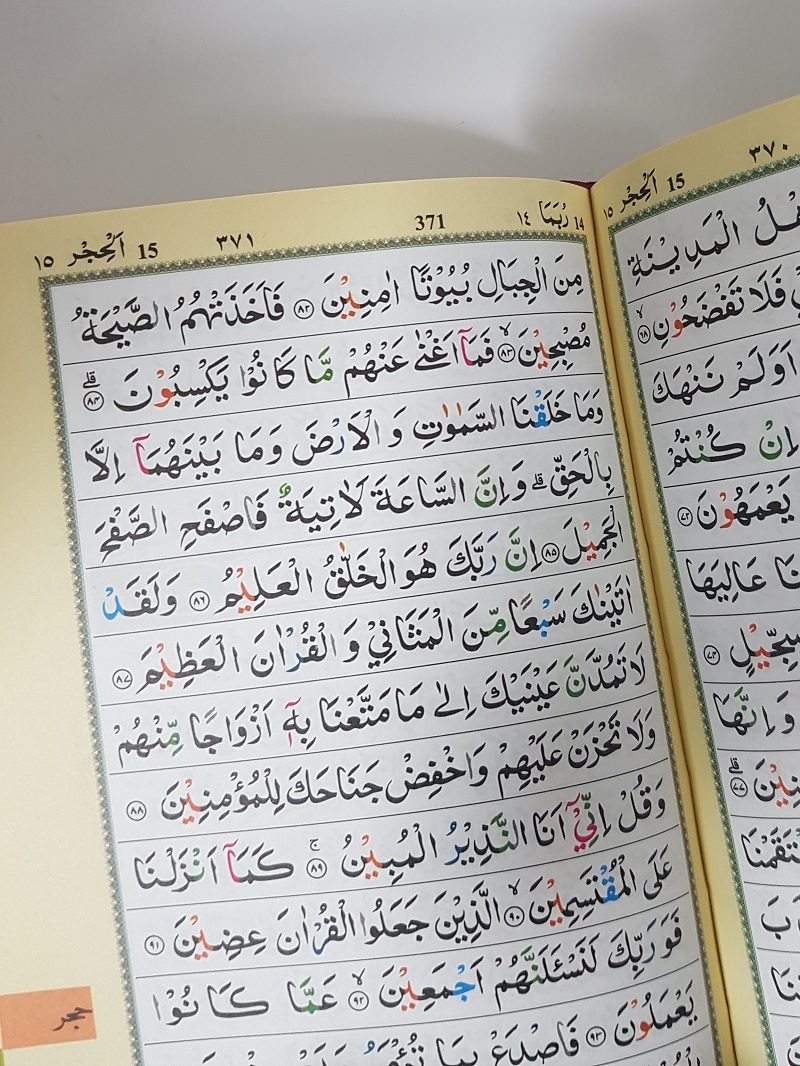 ١٥ اَلْحِجْر 15 ٣٧٠
الْمَدِيْنَةِ
فَلَا تَفْضَحُوْنِ ۙ ٦٨
اَوَلَمْ نَنْهَكَ
اِنْ كُنْتُمْ
يَعْمَهُوْنَ ٧٢
عَالِيَهَا
سِجِّيْلٍ ٧٤
وَاِنَّهَا
14 رُبَمَا ١٤ 371 ٣٧١ 15 اَلْحِجْر ١٥
مِنَ الْجِبَالِ بُيُوْتًا اٰمِنِيْنَ ٨٢ فَاَخَذَتْهُمُ الصَّيْحَةُ
مُصْبِحِيْنَ ۙ ٨٣ فَمَآ اَغْنٰى عَنْهُمْ مَّا كَانُوْا يَكْسِبُوْنَ ۗ ٨٤
وَمَا خَلَقْنَا السَّمٰوٰتِ وَالْاَرْضَ وَمَا بَيْنَهُمَآ اِلَّا
بِالْحَقِّ ۗ وَاِنَّ السَّاعَةَ لَاٰتِيَةٌ فَاصْفَحِ الصَّفْحَ
الْجَمِيْلَ ٨٥ اِنَّ رَبَّكَ هُوَ الْخَلّٰقُ الْعَلِيْمُ ٨٦ وَلَقَدْ
اٰتَيْنٰكَ سَبْعًا مِّنَ الْمَثَانِيْ وَالْقُرْاٰنَ الْعَظِيْمَ ٨٧
لَا تَمُدَّنَّ عَيْنَيْكَ اِلٰى مَا مَتَّعْنَا بِهٖٓ اَزْوَاجًا مِّنْهُمْ
وَلَا تَحْزَنْ عَلَيْهِمْ وَاخْفِضْ جَنَاحَكَ لِلْمُؤْمِنِيْنَ ٨٨
وَقُلْ اِنِّيْٓ اَنَا النَّذِيْرُ الْمُبِيْنُ ۚ ٨٩ كَمَآ اَنْزَلْنَا
عَلَى الْمُقْتَسِمِيْنَ ۙ ٩٠ الَّذِيْنَ جَعَلُوا الْقُرْاٰنَ عِضِيْنَ ٩١
فَوَرَبِّكَ لَنَسْـَٔلَنَّهُمْ اَجْمَعِيْنَ ۙ ٩٢ عَمَّا كَانُوْا
يَعْمَلُوْنَ ٩٣ فَاصْدَعْ بِمَا
حجر